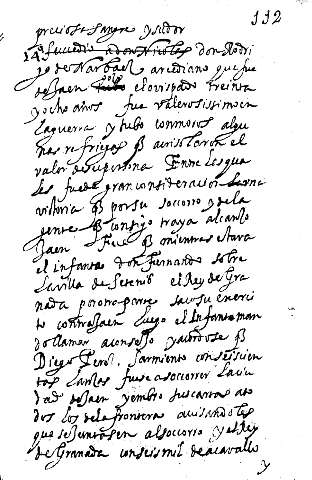 112
preciosa sangre y sudor
14 Sucedio a don Nicolas don Rodri
go de Narbaez arcediano que fue
de Jaen tubo el ovispado treinta
y ocho años fue valerosissimo en
la guerra y tubo con moros algu
nas refriegas q acrisolaron el
valor de su persona Entre las qua
les fue de gran consideracion
victoria q por su socorro y de la
gente q consigo traya alcanço
Jaen Fue q mientras estava
el infante don Fernando sobre
la villa de Setenil el Rey de Gra
nada por otra parte saco su exerci
to contra Jaen luego el Infante man
do llamar a consejo y acordose q
Diego Perez Sarmiento con seiscien
tas lanças fuese a socorrer la ciu
dad de Jaen y embio sus cartas a to
dos los de la frontera avisandoles
que se juntasen al socorro y el Rey
de Granada con seis mil de a cavallo
y